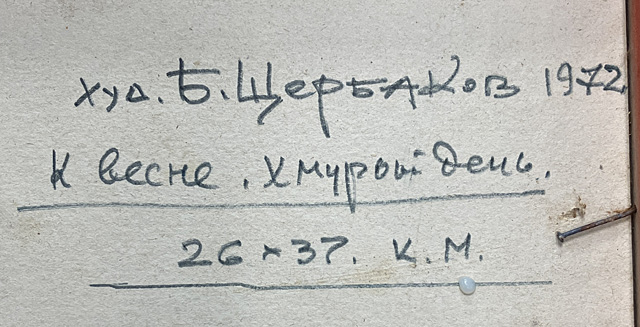 худ. Б. Щербаков 1972
К весне. Хмурый день.
26 × 37. К. М.